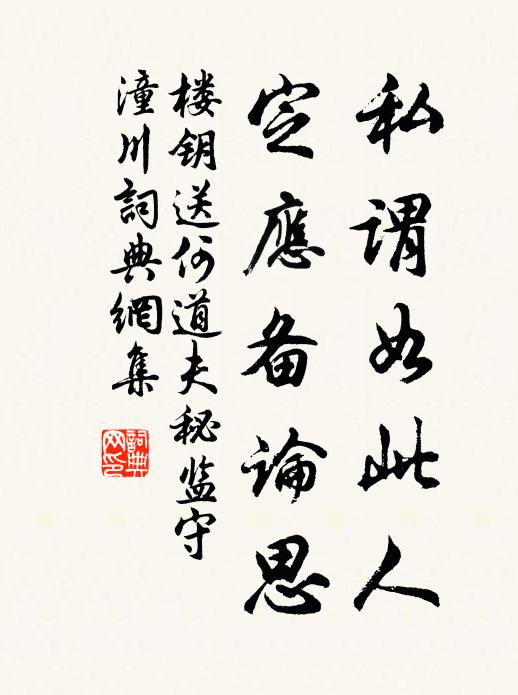 私谓如此人
定應备論思
楼钥送何道夫秘监守
潼川詞典網集
詞典网印